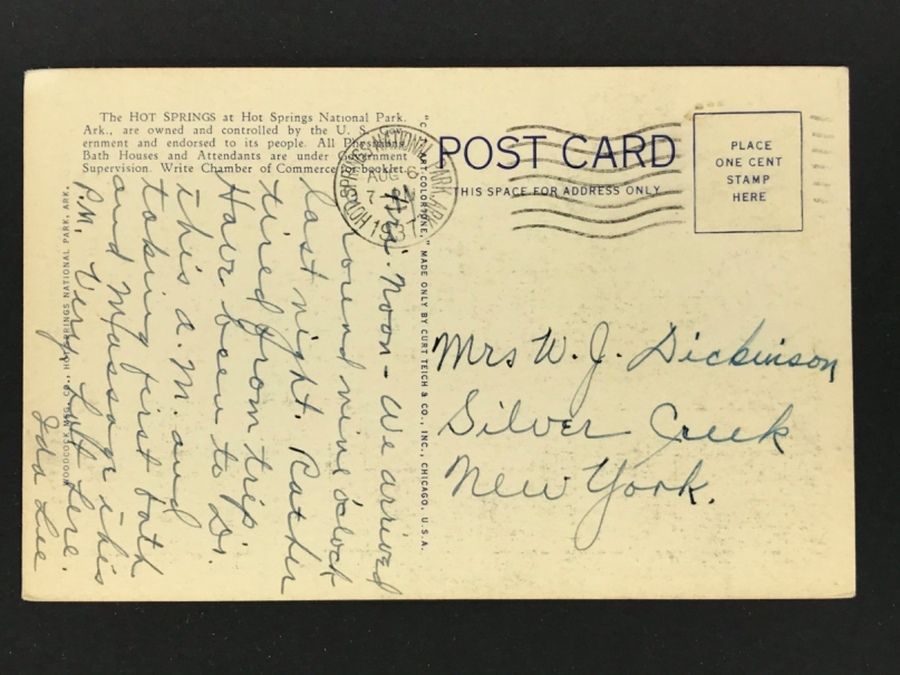 The HOT SPRINGS at Hot Springs National Park,
Ark., are owned and controlled by the U. S. Gov-
ernment and endorsed to its people. All Physicians,
Bath Houses and Attendants are under Government
Supervision. Write Chamber of Commerce for booklet.
Fri. Noon - We arrived
round nine o'clock
last night. Rather
tired from trip.
Have been to Dr.
this a.m. and
taking first bath
and Massage this
P.M. Very hot here.
Ida Lee
WOODCOCK MFG. CO., HOT SPRINGS NATIONAL PARK, ARK.
"C. T. ART-COLORTONE," MADE ONLY BY CURT TEICH & CO., INC., CHICAGO, U.S.A.
HOT SPRINGS NATIONAL PARK, ARK.
AUG 6
7
1937
POST CARD
THIS SPACE FOR ADDRESS ONLY
PLACE
ONE CENT
STAMP
HERE
Mrs W. J. Dickinson
Silver Creek
New York.